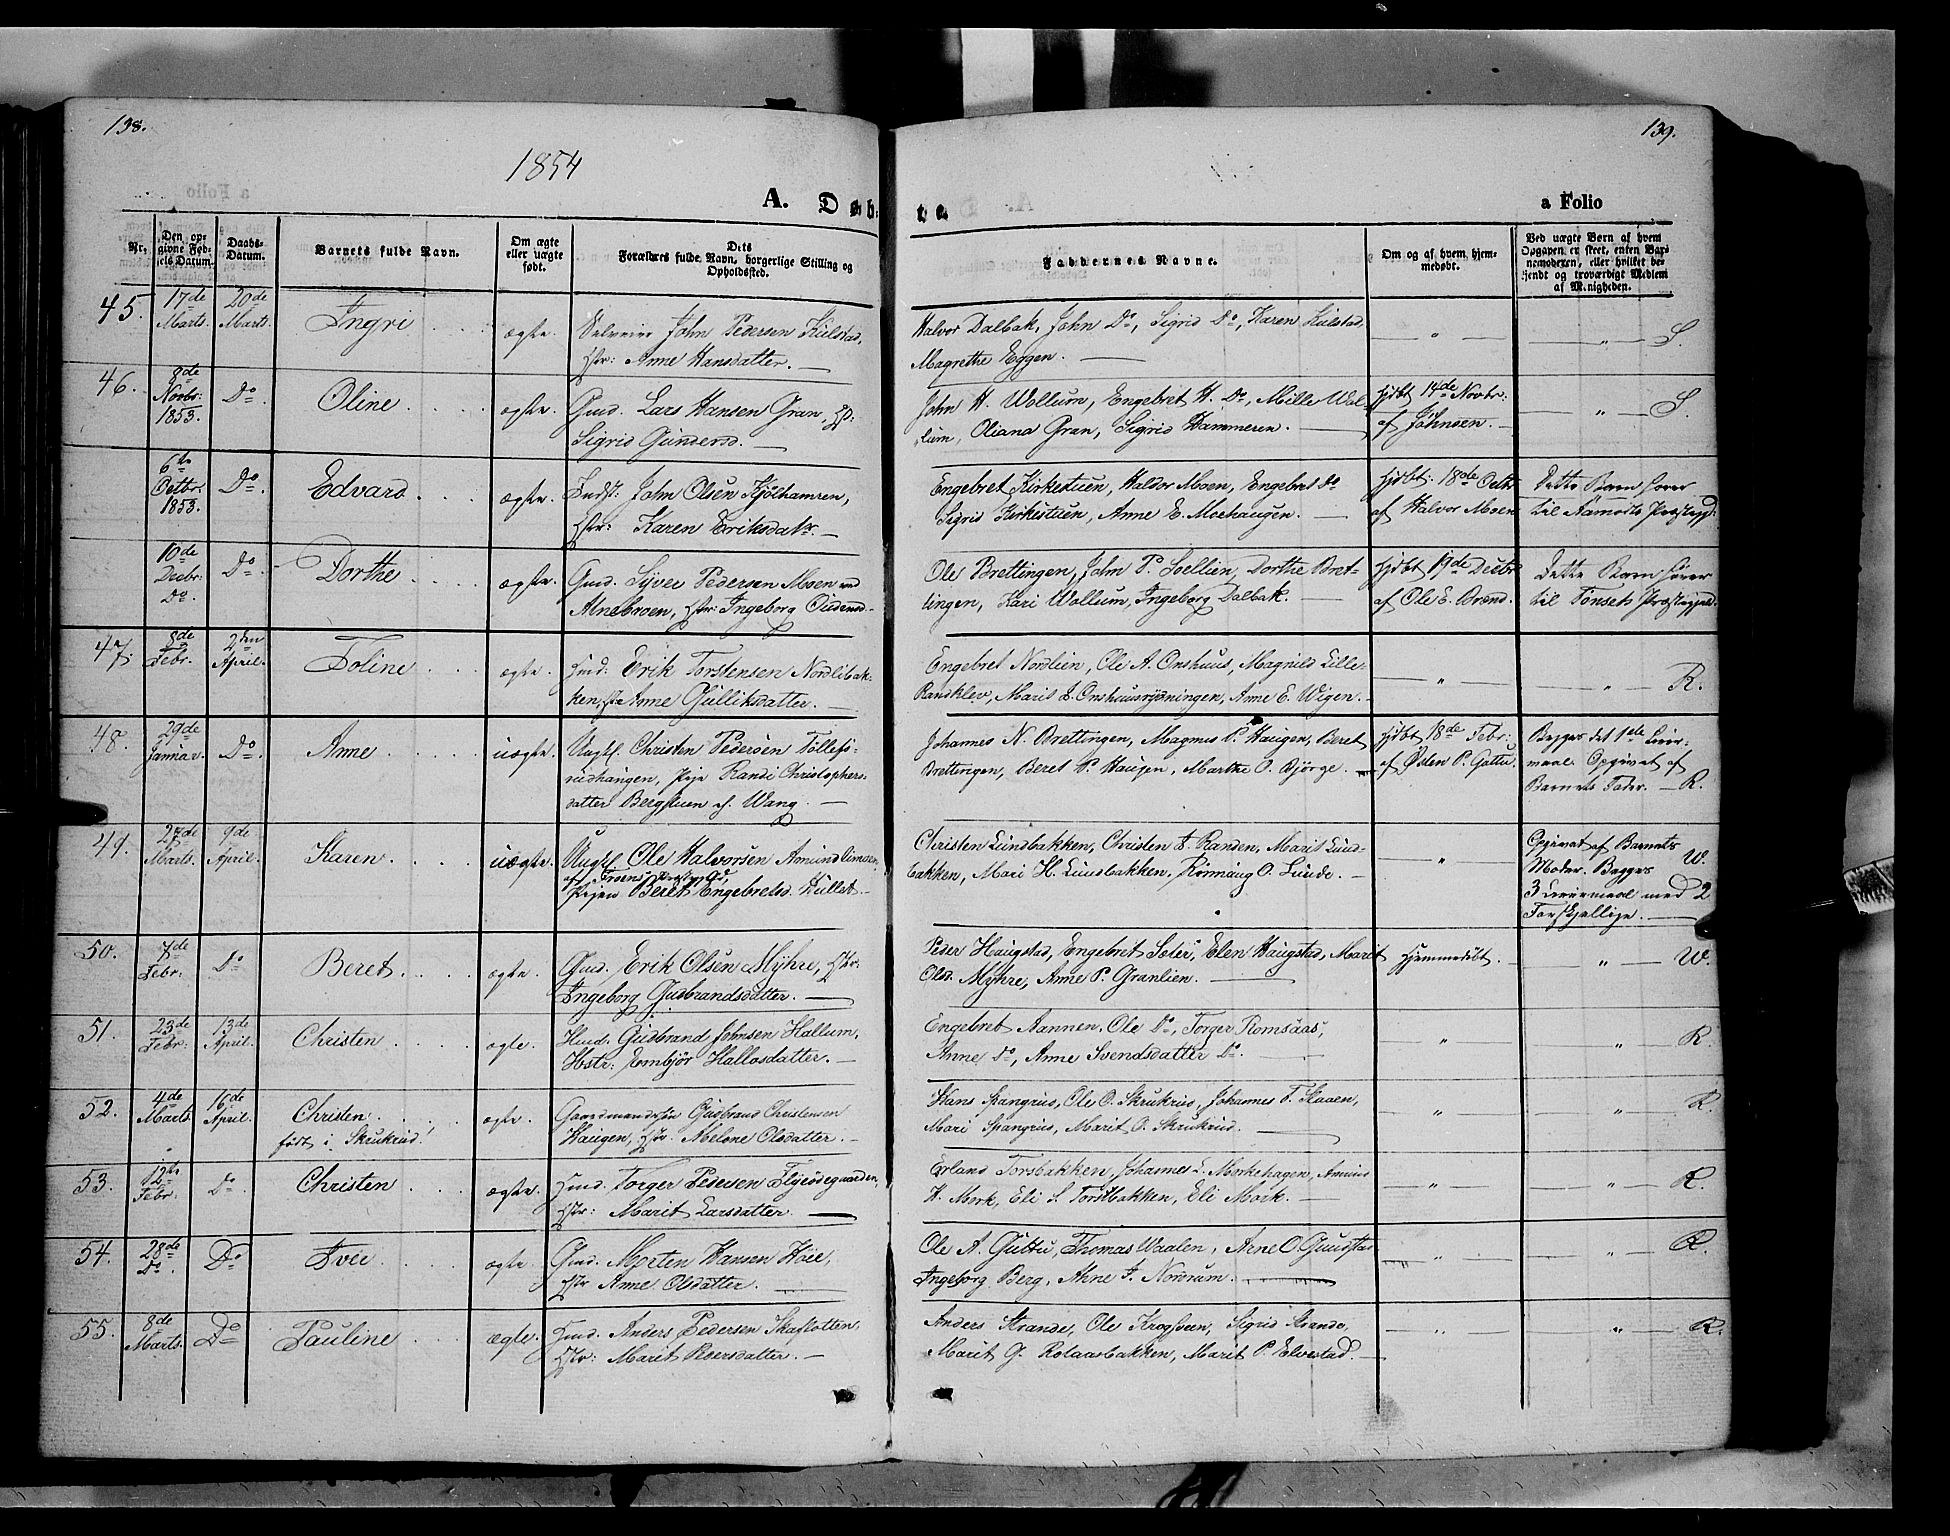 138.
1854
A. Døb-
Nr.
Den opgivne Fødsels Datum.
Daabs-Datum.
Barnets fulde Navn.
Om ægte eller uægte født.
Dets Forældres fulde Navn, borgerlige Stilling og Opholdsted.
45.
17de Marts.
20de Marts.
Ingri
ægte.
Selveier John Pedersen Kulstad,
Hstr: Anne Hansdatter.
46.
8de Novbr: 1853.
Do.
Oline
ægte.
Gmd. Lars Hansen Gran,
Sigrid Gundersd.
6te Octbr. 1853.
Do.
Edvard
ægte.
Indst: John Olsen Kjølhamren,
Hstr: Karen Eriksdatr.
10de Decbr: Do.
Do.
Dorthe
ægte.
Gmd. Syver Pedersen Moen ved
Alnebroen, Hstr: Ingeborg Oudensd.
47.
8de Febr.
2den April.
Toline
ægte.
Hmd. Erik Torstensen Nordlibak-
ken, Hstr Anne Gulliksdatter.
48.
29de Januar.
Do.
Anne
uægte.
Ungk. Christen Pedersen Tollefs-
rudhaugen, Pige Randi Christophers-
datter Bergstuen af Wang.
49.
25de Marts.
9de April.
Karen
uægte.
Ungk. Ole Halvorsen Amundsmoen
af Froens Præstegjd
Pigen Beret Engebretsd. Hullst.
50.
7de Febr:
Do
Beret
ægte.
Gmd. Erik Olsen Myhre, Hstr:
Ingeborg Gudbrandsdatter.
51.
23de Febr:
13de April.
Christen
ægte.
Hmd. Gudbrand Johnsen Hallum,
Hstr: Embjør Hallosdatter.
52.
4de Marts
16de April.
Christen
født i Skrukrud.
ægte.
Gaardmandssøn Gudbrand Christensen
Haugen, Hstr. Melene Olsdatter.
53.
12te Febr.
Do
Christen
ægte.
Hmd. Torger Pedersen Flyødegaarden,
Hstr: Marit Larsdatter.
54.
28de Do.
Do
Iver
ægte.
Gmd. Morten Hansen Høie,
Hstr Anne Olsdatter.
55.
8de Marts.
Do
Pauline
ægte.
Hmd. Anders Pedersen Skaslotten,
Hstr: Marit Pedersdatter.
139.
te.
a Folio
Faddernes Navne.
Om og af hvem hjemmedøbt.
Ved uægte Børn af hvem Opgaven er skeet, enten Barnemoderen, eller hvilket bekjendt og troværdigt Medlem af Menigheden.
Halvor Dalbak, John Do, Sigrid Do, Karen Kulstad,
Magrethe Eggen.
S.
John H. Wollum, Engebret H. Do, Mille Wol-
lum, Oliana Gran, Sigrid Hammeren.
hjdbt 14de Novbr: af Johnsen.
S.
Engebret Kirkestuen, Haldor Moen, Engebret Do
Sigrid Kirkestuen, Anne E. Moehaugen.
hjdbt: 18de Octbr af Halvor Moen
Dette Barn hører til Aamodts Præstegjd:
Ole Brettingen, John P. Soellien, Dorthe Bret-
tingen, Kari Wollum, Ingeborg Dalbak.
hjdbt 19de Decbr af Ole E. Brænd.
Dette Barn hører til Tønsets Præstegjeld.
Engebret Nordlien, Ole A. Onshuus, Magnild Lille-
Randklev, Marit L. Onshuusrydningen, Anne E. Wigen.
R.
Johannes N. Brettingen, Magnus P. Haugen, Beret
Brettingen, Beret P. Haugen, Marthe O. Bjørge.
hjdbt 18de Febr: af Østen P. Guttu.
Begges det 1ste Leier-
maal. Opgivet af
Barnets Fader.
R.
Christen Lundbakken, Christen L. Randen, Marit Lund-
bakken, Mari H. Lundbakken, Rønnaug O. Lunde.
Opgivet af Barnets
Moder. Begges
3 Leiermaal med 2
Forskjellige.
W.
Peder Haugstad, Engebret Sæter, Elen Haugstad, Marit
Olsd. Myhre, Anne P. Granlien.
hjemmedøbt.
W.
Engebret Aannen, Ole Do, Torger Romsaas,
Anne Do, Anne Svendsdatter Do.
R.
Hans Spangrud, Ole O. Skrukrud, Johannes T. Skaaen,
Mari Spangrud, Marit O. Skrukrud.
R.
Erland Torsbakken, Johannes L. Morkehagen, Amund
H. Mork, Eli S. Torstbakken, Eli Mork.
R.
Ole A. Guttu, Thomas Waalen, Arne O Gundstad
Ingeborg Berg, Anne I. Nordrum.
R.
Anders Strande, Ole Krogsveen, Sigrid Strande,
Marit G. Rolaasbakken, Marit P. Elvestad.
R.